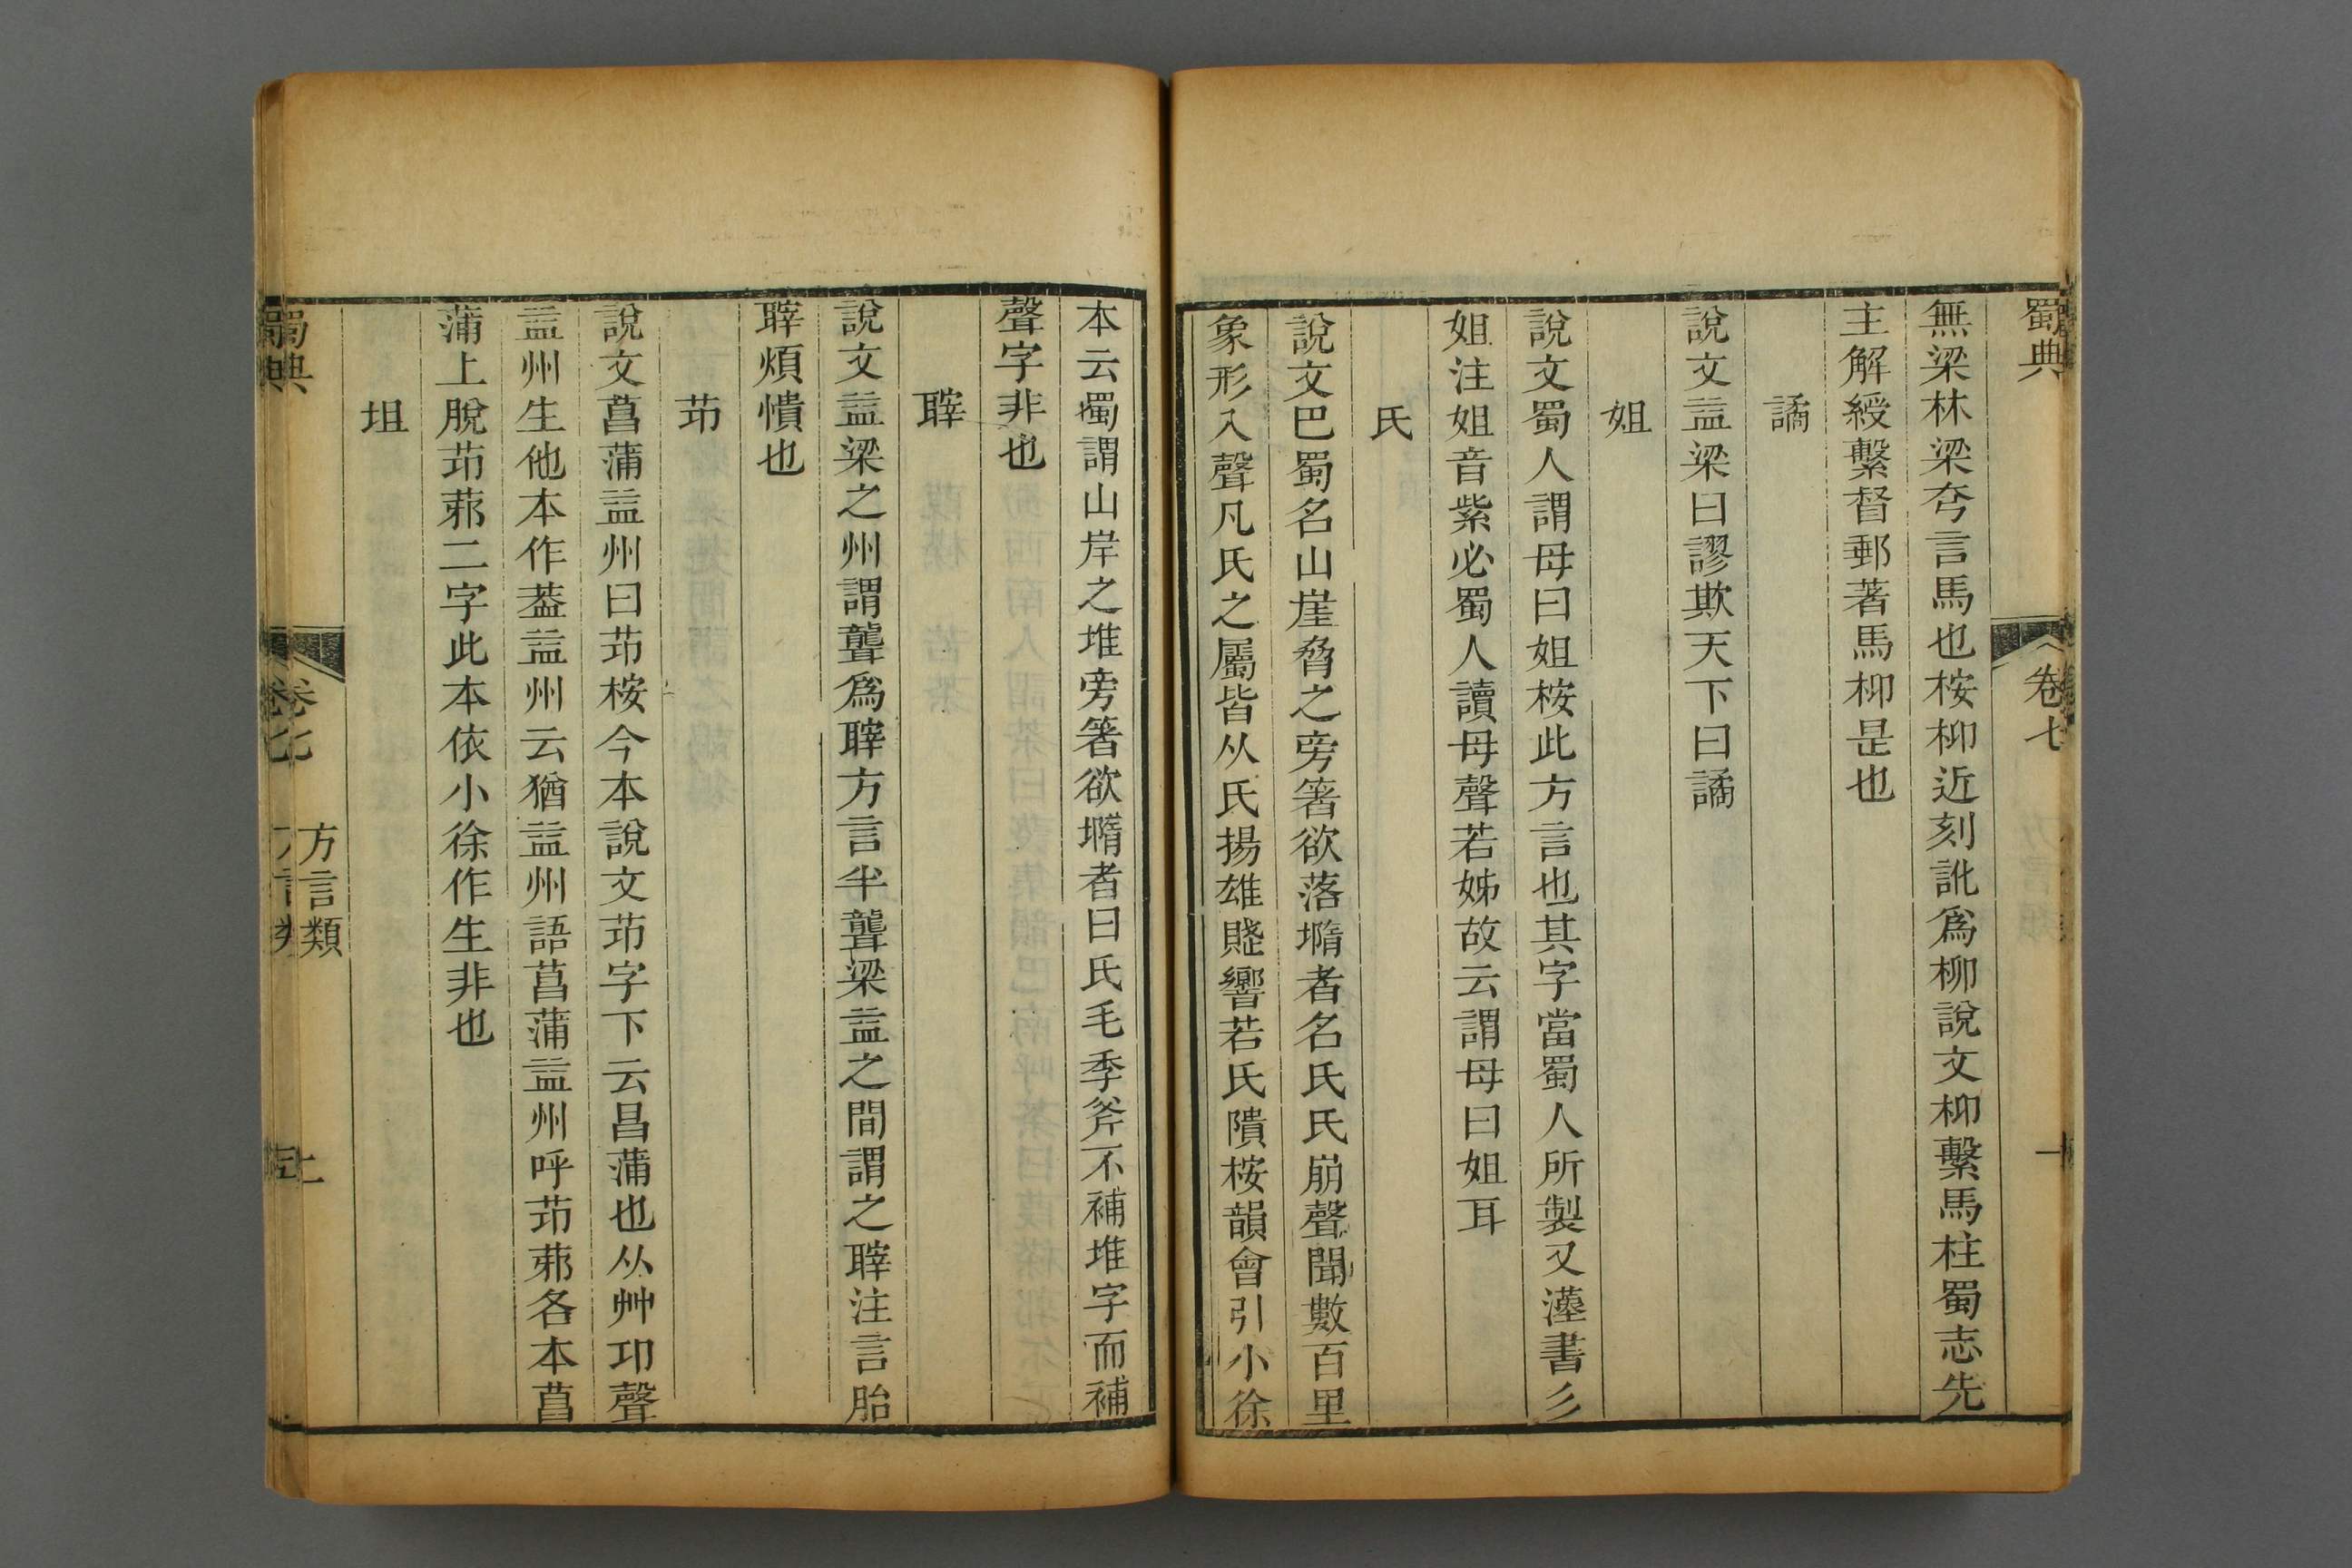 蜀典
卷七
無梁林梁夸言馬也桉枊近刻訛爲柳說文枊繫馬柱蜀志先
主解綬繫督郵著馬枊是也
譎
說文益梁曰謬欺天下曰譎
姐
說文蜀人謂母曰姐桉此方言也其字當蜀人所製又漢書彡
姐注姐音紫必蜀人讀母聲若姊故云謂母曰姐耳
氏
說文巴蜀名山崖脅之旁箸欲落墮者名氏氏崩聲聞數百里
象形入聲凡氏之屬皆从氏揚雄賤響若氏隤桉韻會引小徐
本云蜀謂山岸之堆旁箸欲墮者曰氏毛季斧不補堆字而補
聲字非也
聹
說文益梁之州謂聾爲聹方言半聾梁益之間謂之聹注言胎
聹煩憒也
茚
說文菖蒲益州曰茚桉今本說文茚字下云昌蒲也从艸卬聲
益州生他本作葢益州云猶益州語菖蒲益州呼茚䓲各本菖
蒲上脫茚䓲二字此本依小徐作生非也
坥
蜀典
卷七
方言類